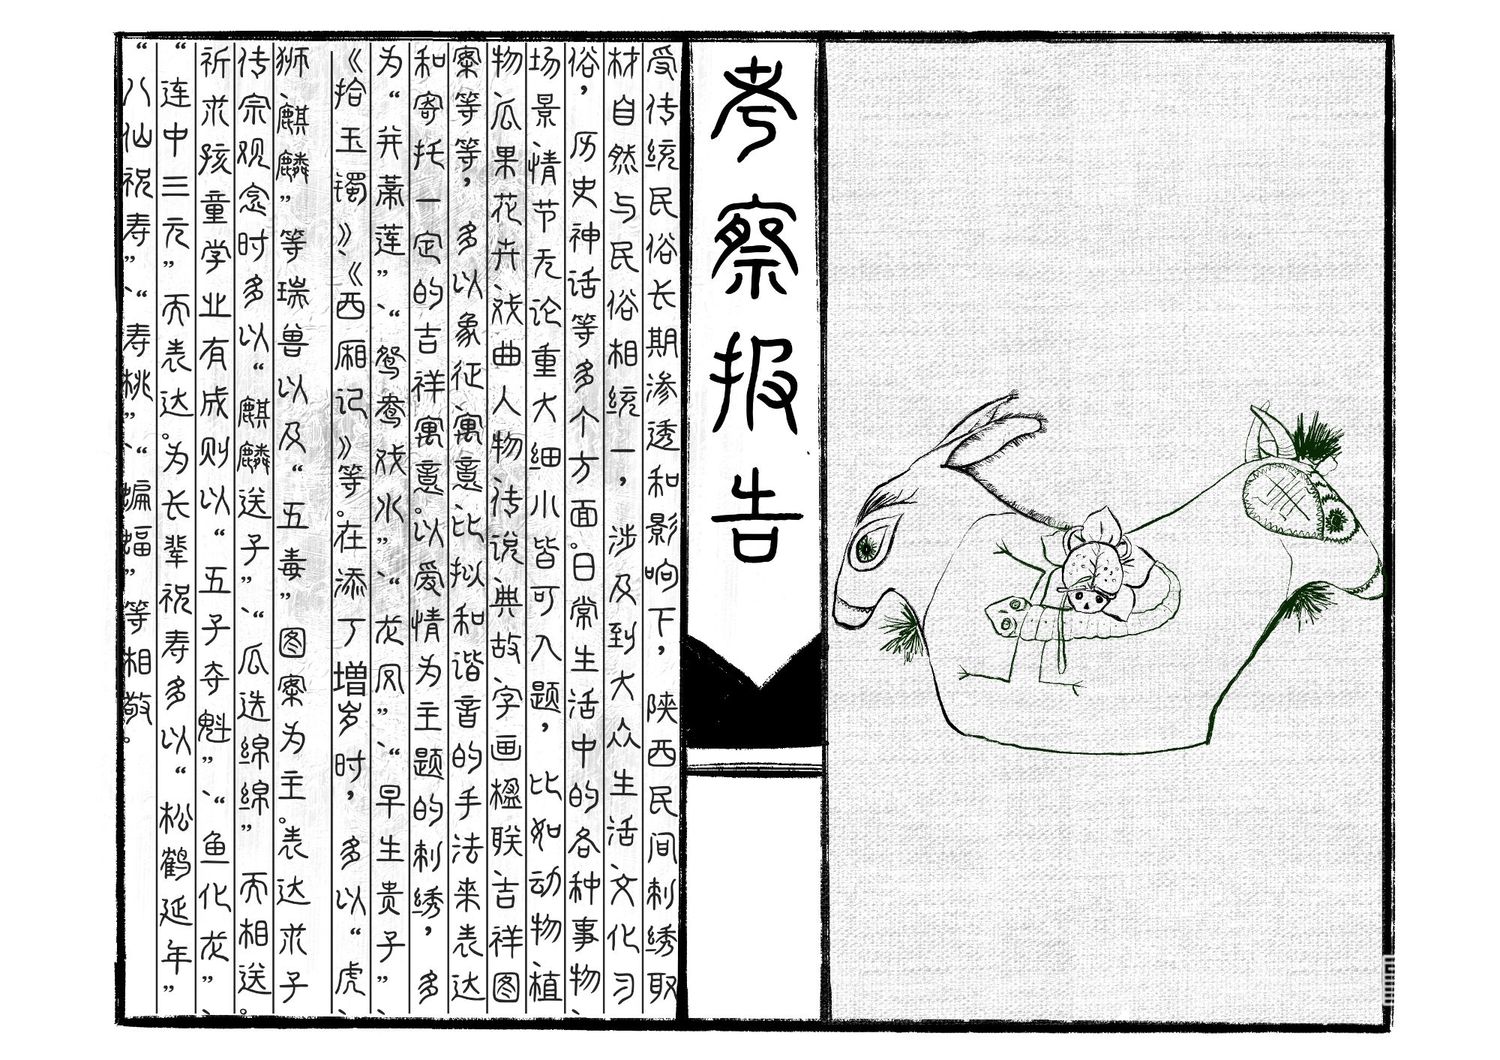 考察报告
受传统民俗长期渗透和影响下，陕西民间刺绣取
材自然与民俗相统一，涉及到大众生活文化习
俗，历史神话等多个方面。日常生活中的各种事物、
场景情节无论重大细小皆可入题，比如动物植
物瓜果花卉戏曲人物传说典故字画楹联吉祥图
案等等，多以象征寓意比拟和谐音的手法来表达
和寄托一定的吉祥寓意。以爱情为主题的刺绣，多
为“并蒂莲”、“鸳鸯戏水”、“龙凤”、“早生贵子”、
《拾玉镯》、《西厢记》等。在添丁增岁时，多以“虎、
狮、麒麟”等瑞兽以及“五毒”图案为主。表达求子
传宗观念时多以“麒麟送子”、“瓜选绵绵”而相送。
祈求孩童学业有成则以“五子夺魁”、“鱼化龙”、
“连中三元”而表达。为长辈祝寿多以“松鹤延年”
“八仙祝寿”、“寿桃”、“蝙蝠”等相敬。